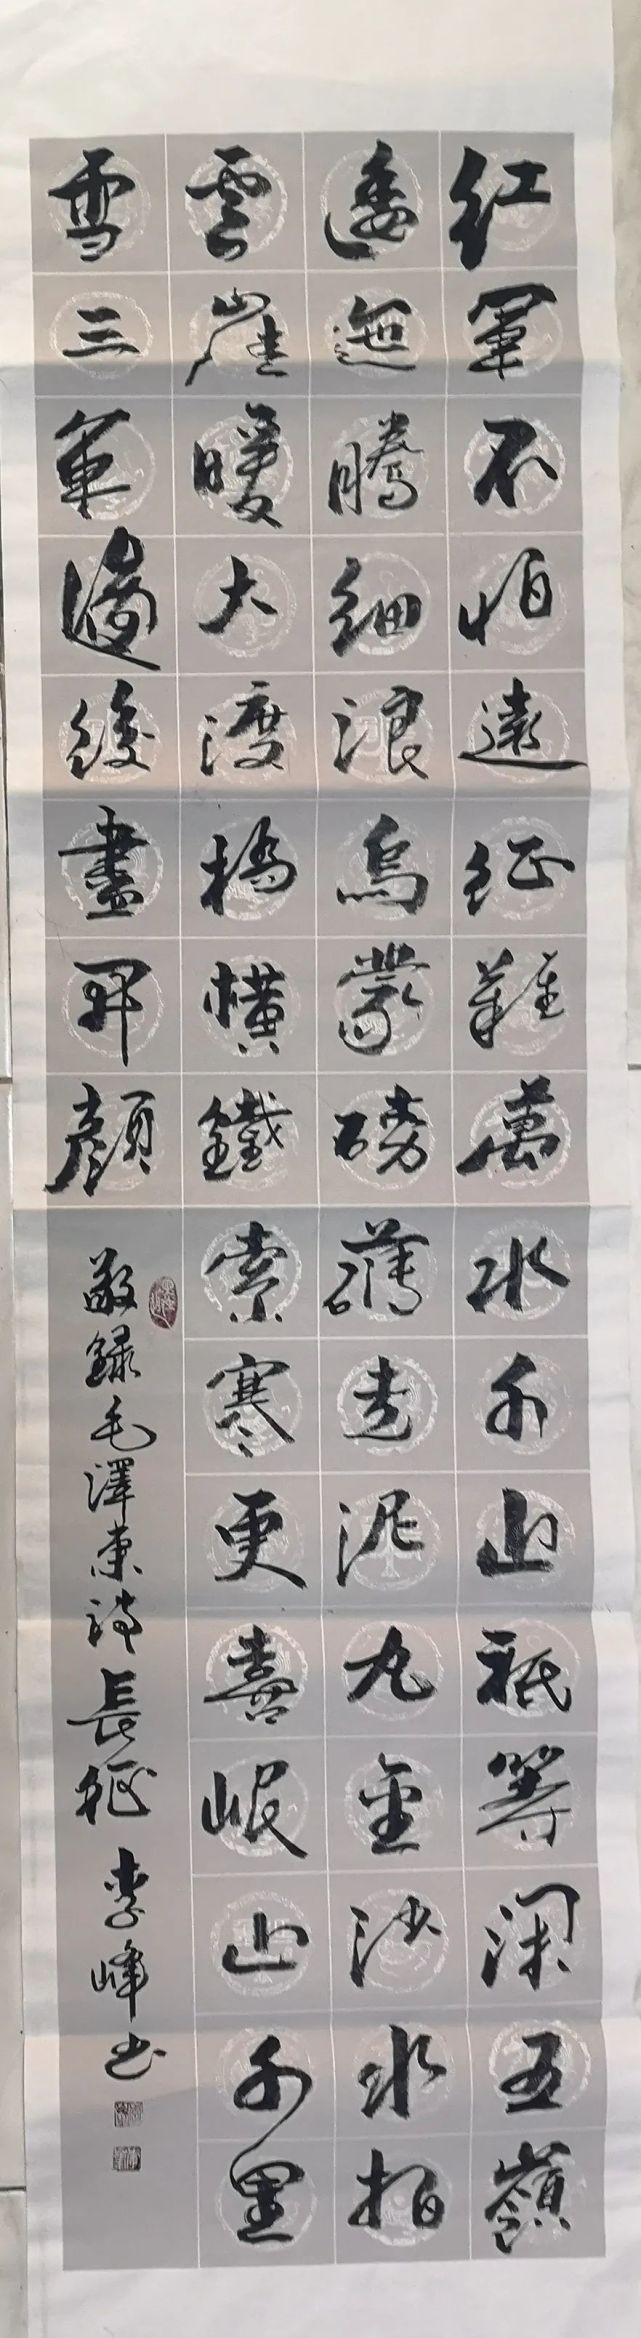 紅軍不怕遠征難萬水千山祇等闲五嶺
逶迤騰細浪烏蒙磅礴走泥丸金沙水拍
雲崖暖大渡橋橫鐵索寒更喜岷山千里
雪三軍過後盡開顔
敬録毛澤東詩長征李峰书